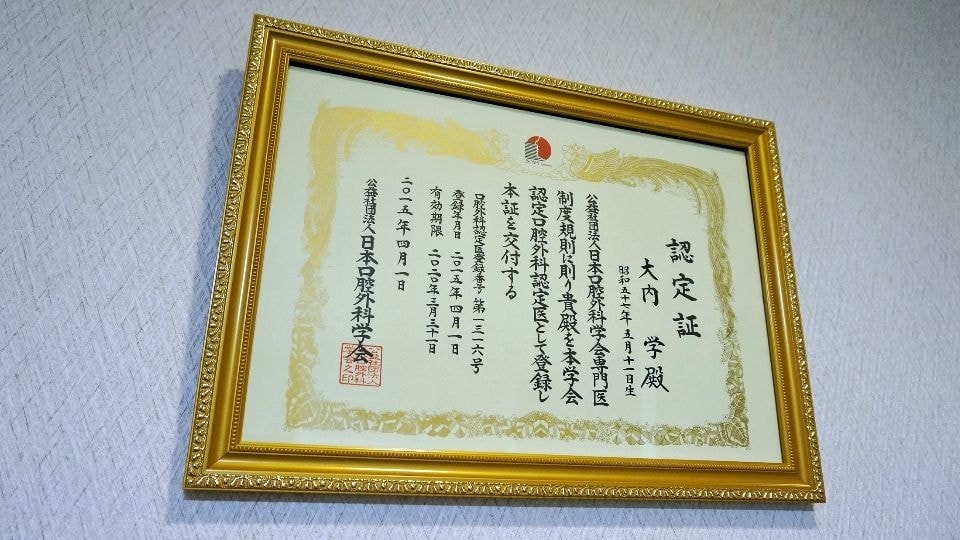 認定証
大内 学 殿
昭和五十七年五月十一日生
公益社団法人日本口腔外科学会専門医
制度規則に則り貴殿を本学会
認定口腔外科認定医として登録し
本証を交付する
口腔外科認定医登録番号 第一三一六号
登録年月日 二〇一五年四月一日
有効期限 二〇二〇年三月三十一日
二〇一五年四月一日
公益社団法人日本口腔外科学会